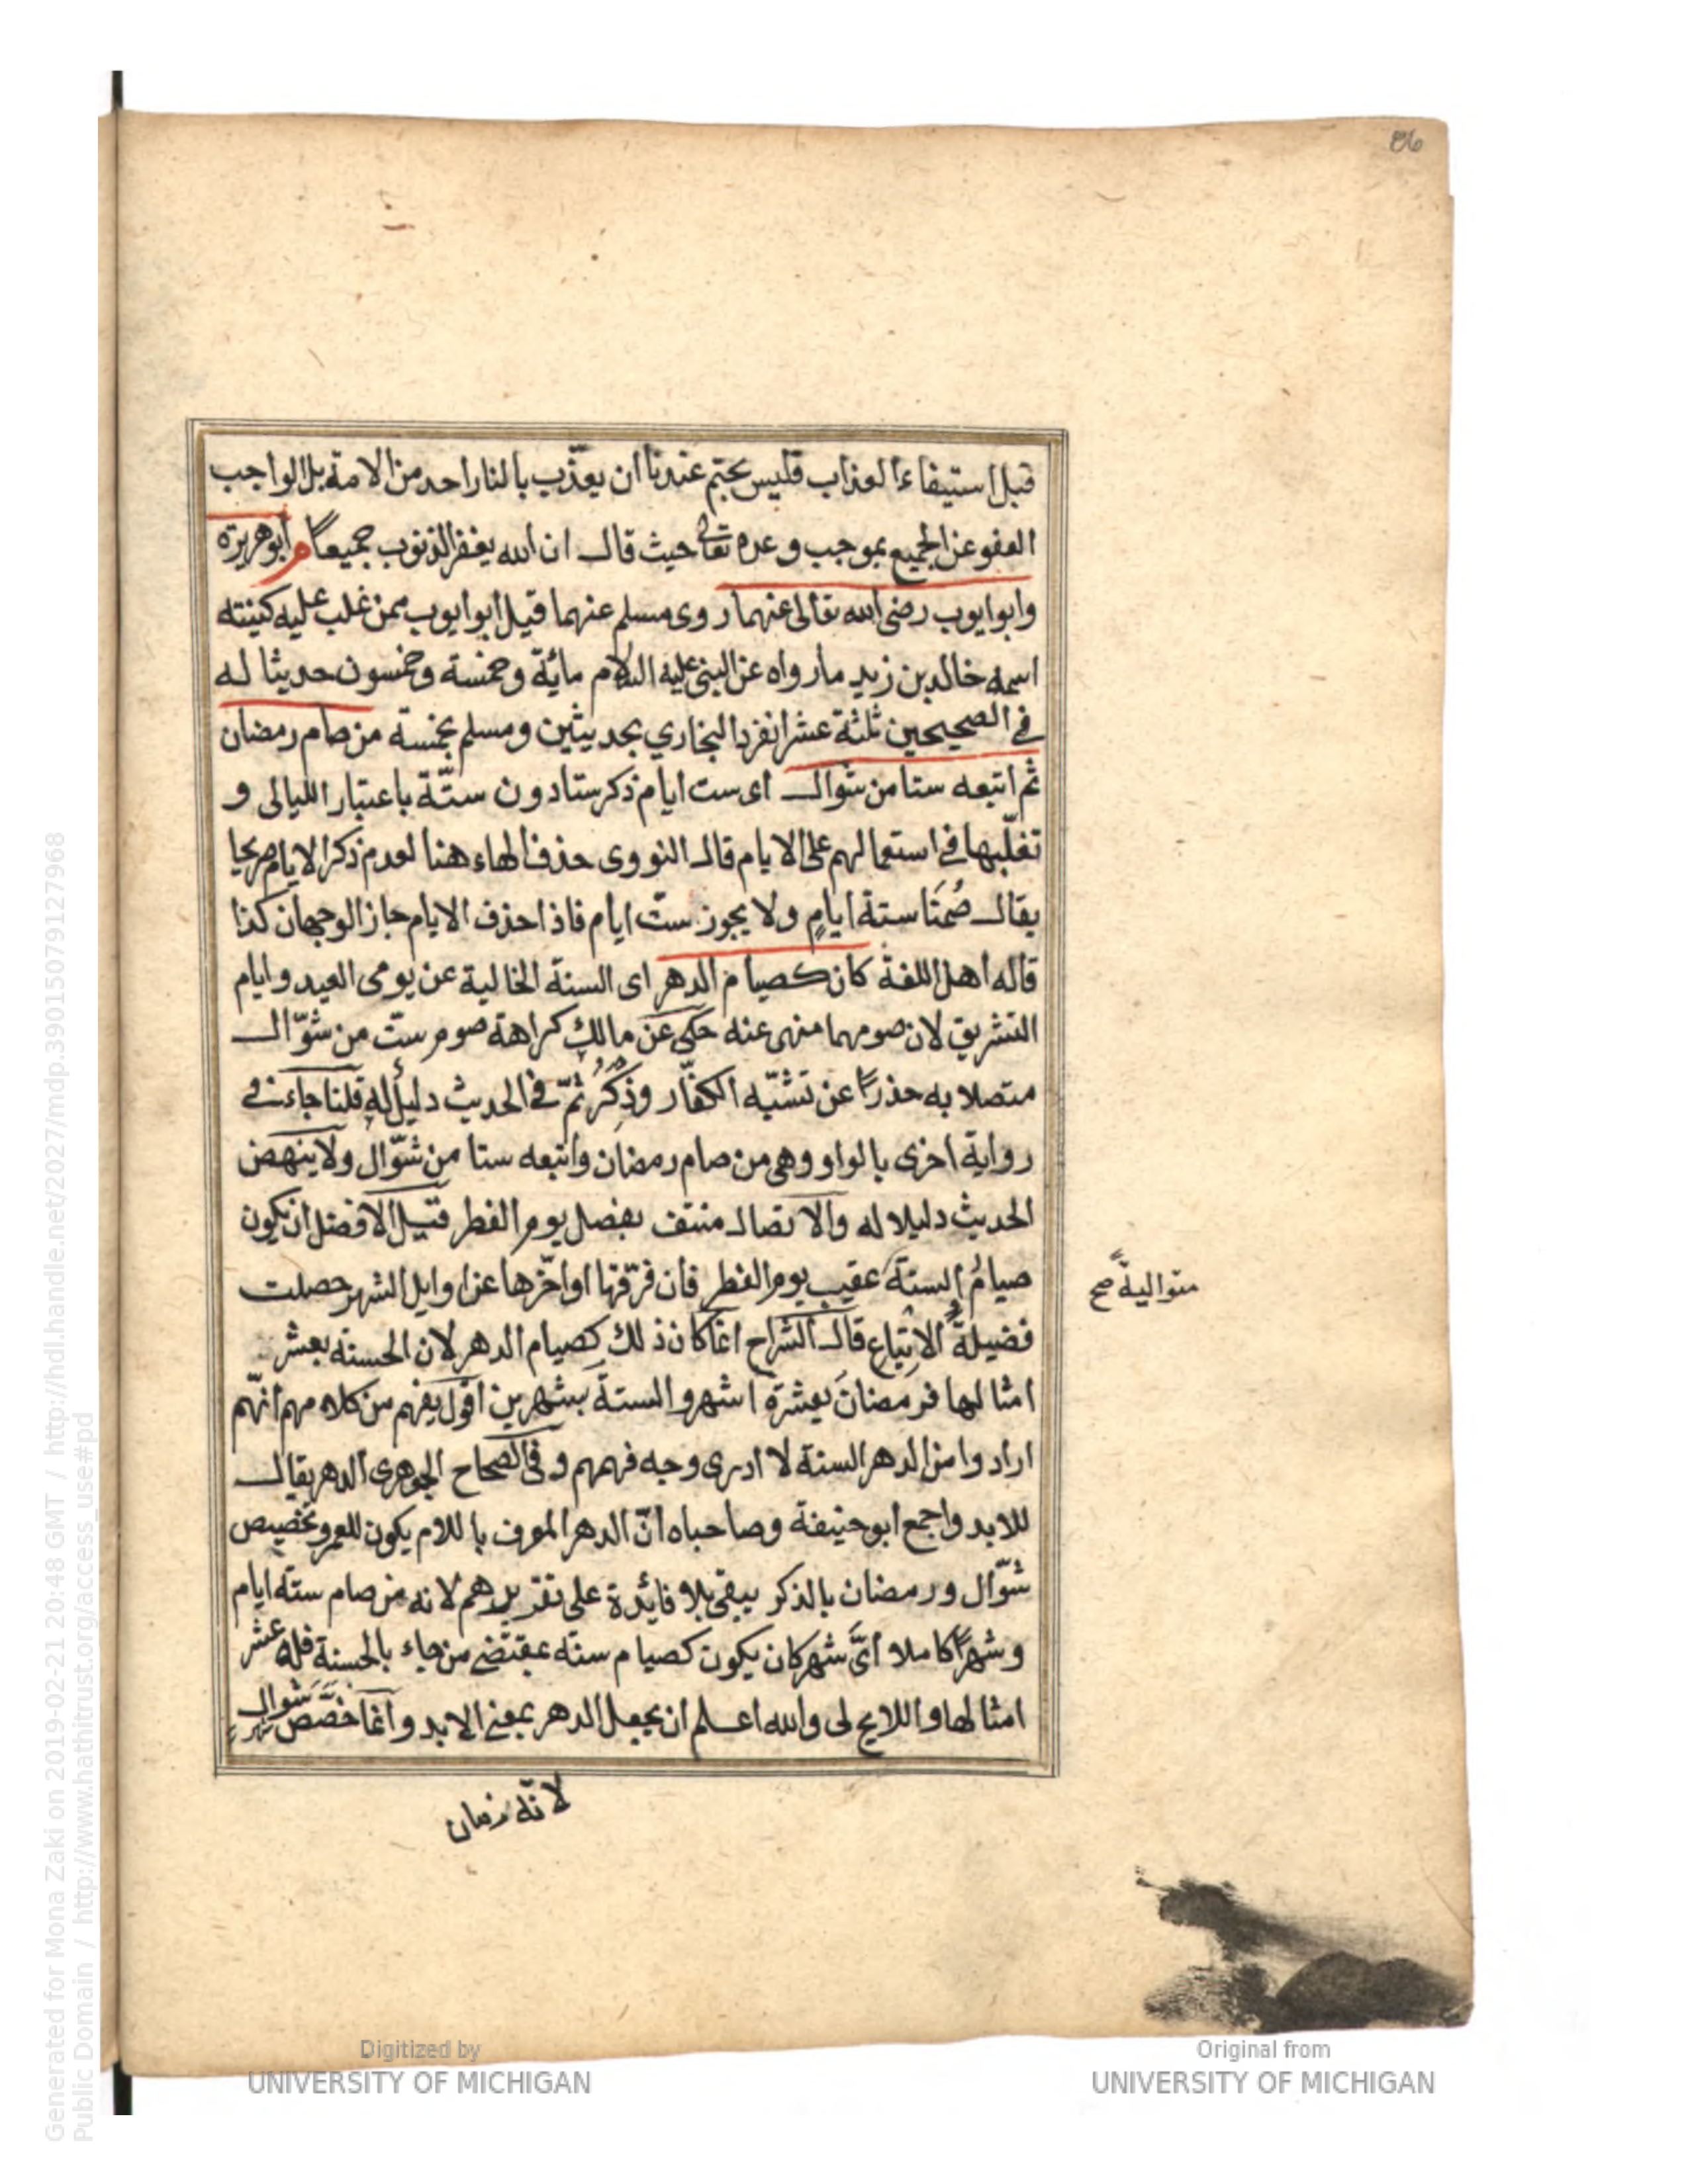 قبل استيفاء العذاب فليس بحتم عندنا ان يعذّب بالنار احد من الامة بل الواجب
العفو عن الجميع بموجب وعده تعالى حيث قال ان الله يغفر الذنوب جميعاً م أبو هريرة
وابو ايوب رضى الله تعالى عنهما روى مسلم عنهما قيل ابو ايوب ممن غلب عليه كنيته
اسمه خالد بن زيد مارواه عن النبى عليه السلام مائة وخمسة وخمسون حديثا له
فى الصحيحين ثلثة عشر انفرد البخاري بحديثين ومسلم بخمسة من صام رمضان
ثم اتبعه ستا من شوال اى ست ايام ذكر ستا دون ستّة باعتبار الليالى و
تغلّبها فى استعمالهم على الايام قال النووى حذف الهاء هنا لعدم ذكر الايام صريحا
يقال صُمْنَا ستة ايامٍ ولا يجوز ستّ ايام فاذا حذف الايام جاز الوجهان كذا
قاله اهل اللغة كان كصيام الدهر اى السنة الخالية عن يومى العيد وايام
التشريق لان صومهما منهى عنه حكى عن مالك كراهة صوم ستّ من شوّال
متصلا به حذراً عن تشبّه الكفّار وذِكْرُ ثمّ فى الحديث دليلٌ له قلنا جاء فى
رواية اخرى بالواو وهى من صام رمضان واتبعه ستا من شوّال ولا ينهض
الحديث دليلا له والاتصال منتف بفصل يوم الفطر قيل الافضل ان يكون
صيامُ الستة عقيب يوم الفطر فان فرّقها او اخّرها عن اوايل الشهر حصلت
متواليةً صح
فضيلةُ الاتباع قال الشراح انما كان ذلك كصيام الدهر لان الحسنه بعشر
امثالها فرمضان بعشرة اشهر والستة بشهرين اقول يفهم من كلامهم انّهم
ارادوا من الدهر السنة لا ادرى وجه فهمهم وفى الصحاح الجوهرى الدهر يقال
للابد واجمع ابو حنيفة وصاحباه انّ الدهر المعرف باللام يكون للعمر وتخصيص
شوّال ورمضان بالذكر يبقى بلا فائدة على تقديرهم لانه من صام ستة ايام
وشهراً كاملا اىّ شهر كان يكون كصيام سنة بمقتضى من جاء بالحسنة فله عشر
امثالها واللايح لى والله اعلم ان يجعل الدهر بمعنى الابد وانما خصّص شوال
لانّه زمان
Digitized by
UNIVERSITY OF MICHIGAN
Original from
UNIVERSITY OF MICHIGAN
Generated for Mona Zaki on 2019-02-21 20:48 GMT / http://hdl.handle.net/2027/mdp.39015079127968
Public Domain / http://www.hathitrust.org/access_use#pd